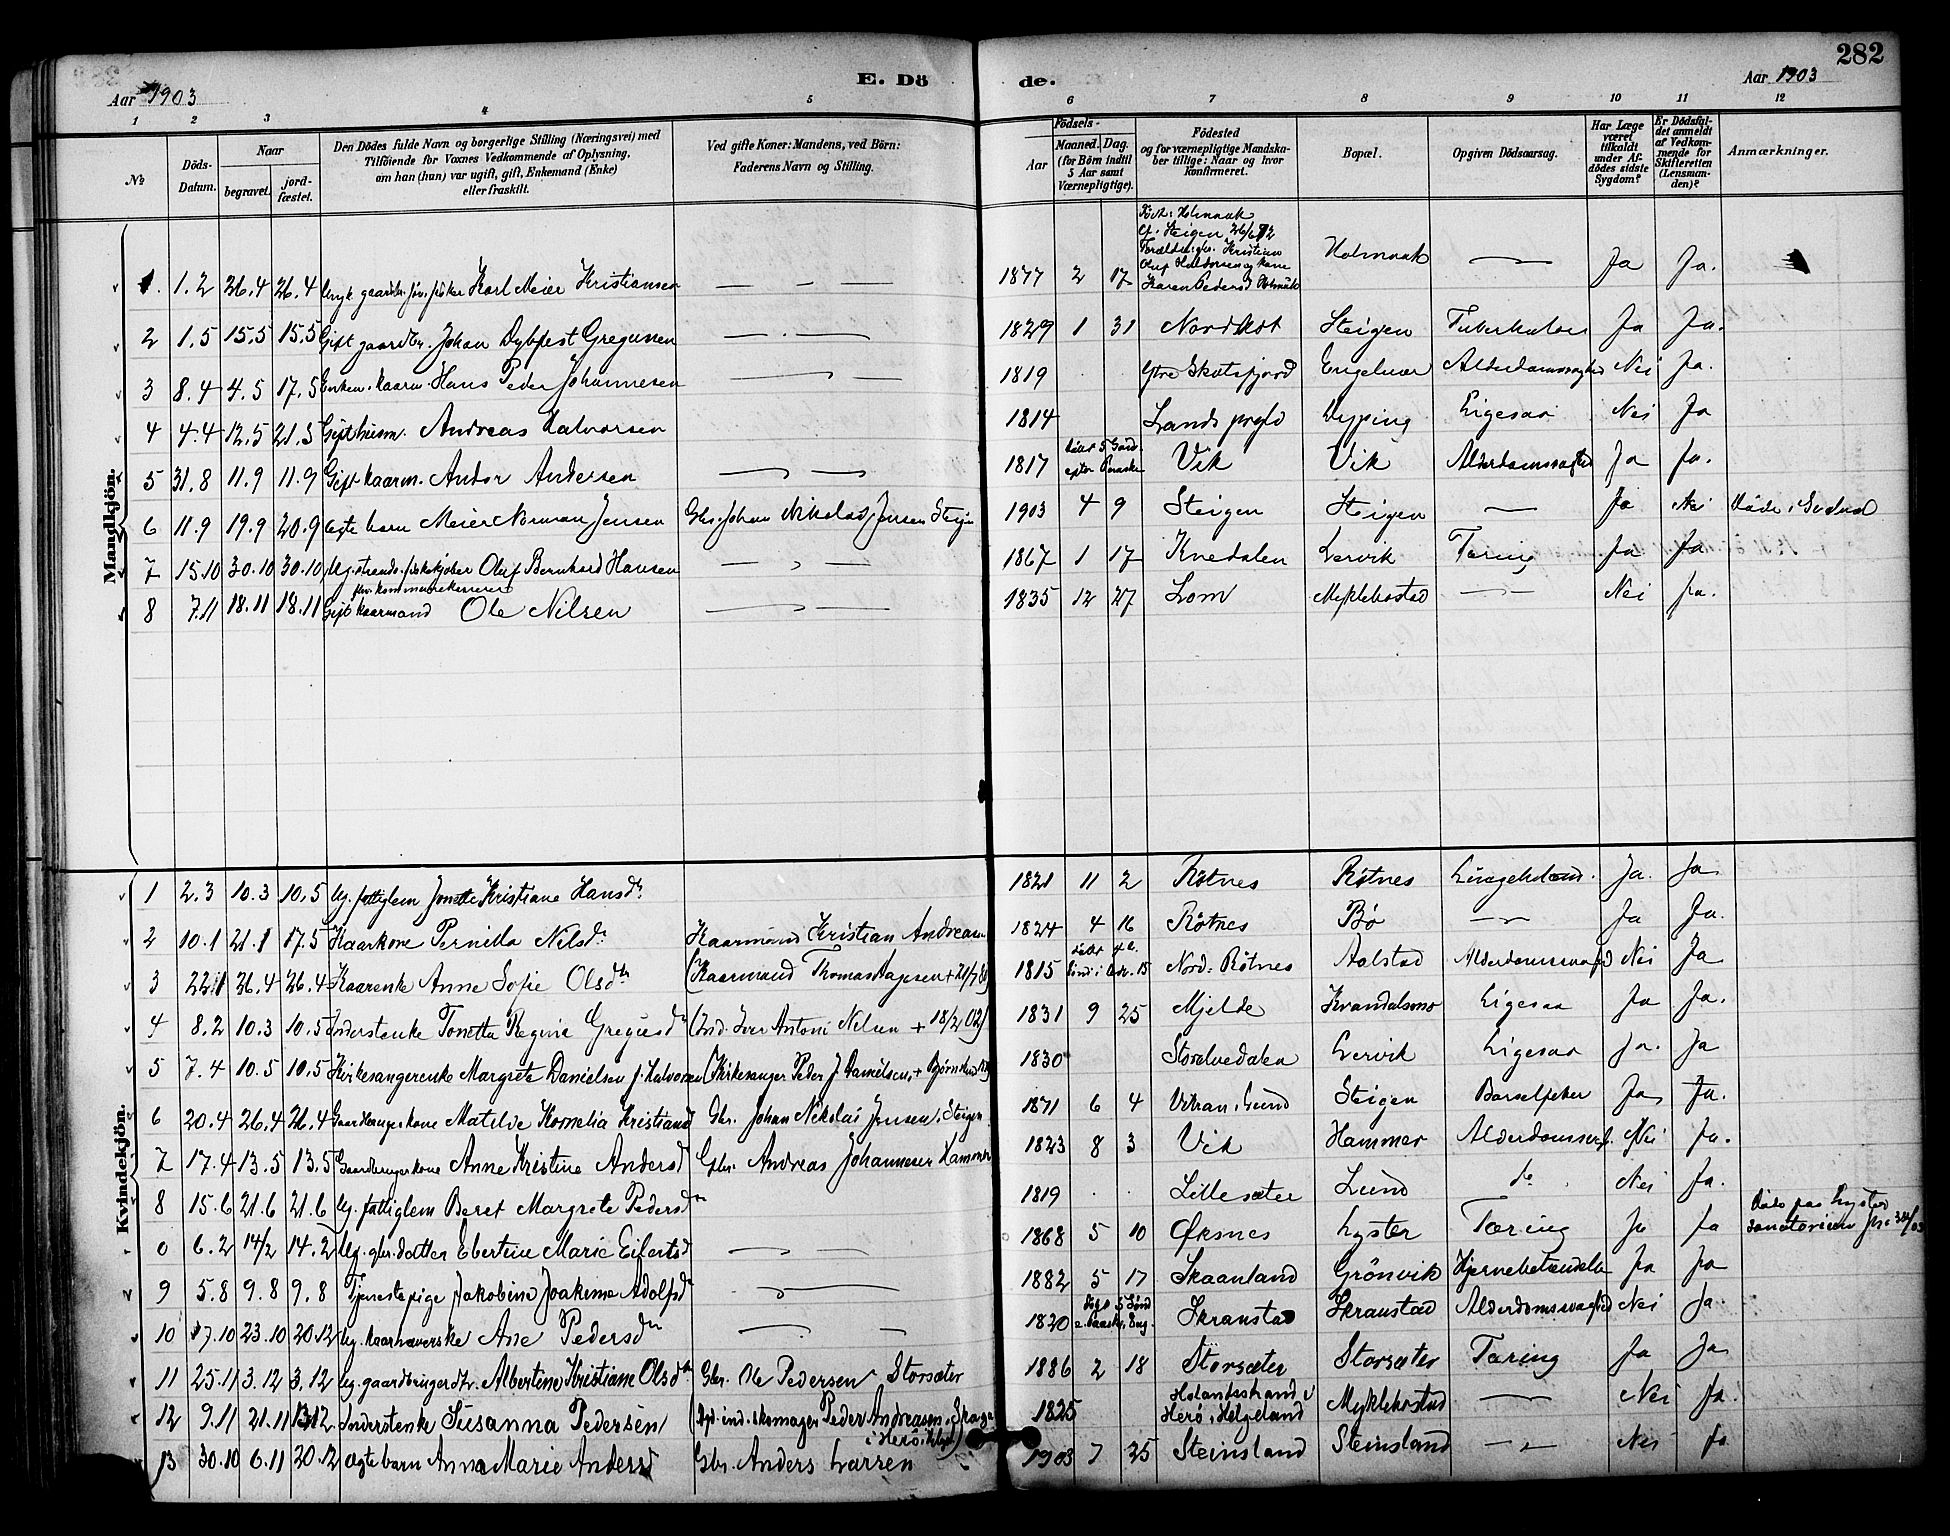 282
E. Dö de.
Aar 1903
Aar 1903
1 2 3 4 5 6 7 8 9 10 11 12
№
Döds-Datum.
Naar
begravet.
jord-fæstet.
Den Dödes fulde Navn og borgerlige Stilling (Næringsvei) med
Tilföiende for Voxnes Vedkommende af Oplysning,
om han (hun) var ugift, gift, Enkemand (Enke)
eller fraskilt.
Ved gifte Koner: Mandens, ved Börn:
Faderens Navn og Stilling.
Födsels-
Aar
Maaned.
Dag.
(for Börn indtil
5 Aar samt
Værnepligtige).
Födested
og for værnepligtige Mandska-
ber tillige: Naar og hvor
konfirmeret.
Bopæl.
Opgiven Dödsaarsag.
Har Læge
været
tilkaldt
under Af-
dödes sidste
Sygdom?
Er Dödsfal-
det anmeldt
af Vedkom-
mende for
Skifteretten
(Lensman-
den)?
Anmærkninger.
Mandkjön.
1. 1.2 26.4 26.4 Karl Meier Kristiansen 1877 2 17 Holmaak Ja Ja.
2 1.5 15.5 15.5 Gift gaardbr. Johan Dybfest Gregusen 1829 1 31 Nordskot Steigen Tuberkulose Ja Ja.
3 8.4 4.5 17.5 Enkem. kaarm. Hans Peder Johannesen 1819 Ytre Skotsfjord Engelvær Alderdomssvaghed Nei Ja.
4 4.4 12.5 21.5 Gift husm. Andreas Halvorsen 1814 Lands prgld Dyping Ligesaa Nei Ja
5 31.8 11.9 11.9 Gift kaarm. Andor Andersen 1817 Vik Vik Alderdomssvaghed Ja Ja.
6 11.9 19.9 20.9 Ægte barn Meier Norman Jensen Gbr. Johan Nikolai Jensen Steigen 1903 4 9 Steigen Steigen Ja Nei
7 15.10 30.10 30.10 Oluf Bernhard Hansen 1867 1 17 Kvedalen Lervik Tæring Ja Ja
8 7.11 18.11 18.11 Gift kaarmand Ole Nilsen 1835 12 27 Lom Myklebostad Nei Ja.
Kvindekjön.
1 2.3 10.3 10.5 Ug. fattiglem Jonette Kristiane Hansdr 1821 11 2 Røtnes Røtnes Ja. Ja
2 10.1 21.1 17.5 Kaarkone Pernilla Nilsdr Kaarmand Kristian Andreasen 1824 4 16 Røtnes Bø Ja Ja.
3 22.1 26.4 26.4 Kaarenke Anne Sofie Olsdtr (Kaarmand Thomas Aagesen 1815 Nord: Røtnes Aalstad Alderdomssvaghed Nei Ja
4 8.2 10.3 10.5 Inderstenke Tonetta Regina Gregusdr (Ind. Iver Antoni Nilsen + 18/2 02) 1831 9 25 Mjelde Kvandalsmo Ligesaa Ja Ja.
5 7.4 10.5 10.5 Kirkesangerenke Margrete Danielsen f. Halvorsen (Kirkesanger Peder J. Danielsen 1830 Storelvedalen Lervik Ligesaa Ja. Ja
6 20.4 26.4 26.4 Gaardbrugerkone Matilde Kornelia Kristiansd Gbr. Johan Nikolai Jensen, Steigen 1871 6 4 Steigen Barselfeber Ja Ja.
7 17.4 13.5 13.5 Gaardbrugerkone Anne Kristine Andersd Gbr. Andreas Johannesen Hammer 1823 8 3 Vik Hammer Nei Ja.
8 15.6 21.6 21.6 Ug. fattiglem Beret Margrete Pedersdr 1819 Lillesæter Lund do Nei Ja.
0 6.2 14/2 14.2 Ug. gbr. datter Ebertine Marie Eifertsd 1868 5 10 Øksnes Lyster Tæring Ja Ja Døde paa Lyster sanatorium
9 5.8 9.8 9.8 Tjenestepige Jakobine Joakime Adolfsdr 1882 5 17 Skaanland Grönvik Hjernebetændelse Ja Ja
10 17.10 23.10 20.12 Ane Pedersdr 1820 Skranstad Skranstad Alderdomssvaghed Nei Ja.
11 25.11 3.12 3.12 Ug. gaardbrugerdtr. Albertine Kristiane Olsdtr Gbr. Ole Pedersen Storsæter 1886 2 18 Storsæter Storsæter Tæring Ja Ja
12 9.11 21.11 13.12 Inderstenke Susanna Pedersen Peder Andreasen 1825 Herø i Helgeland Myklebostad Nei Ja.
13 30.10 6.11 20.12 Ægte barn Anna Marie Andersd Gbr. Anders Larsen 1903 7 25 Steinsland Steinsland Nei Ja